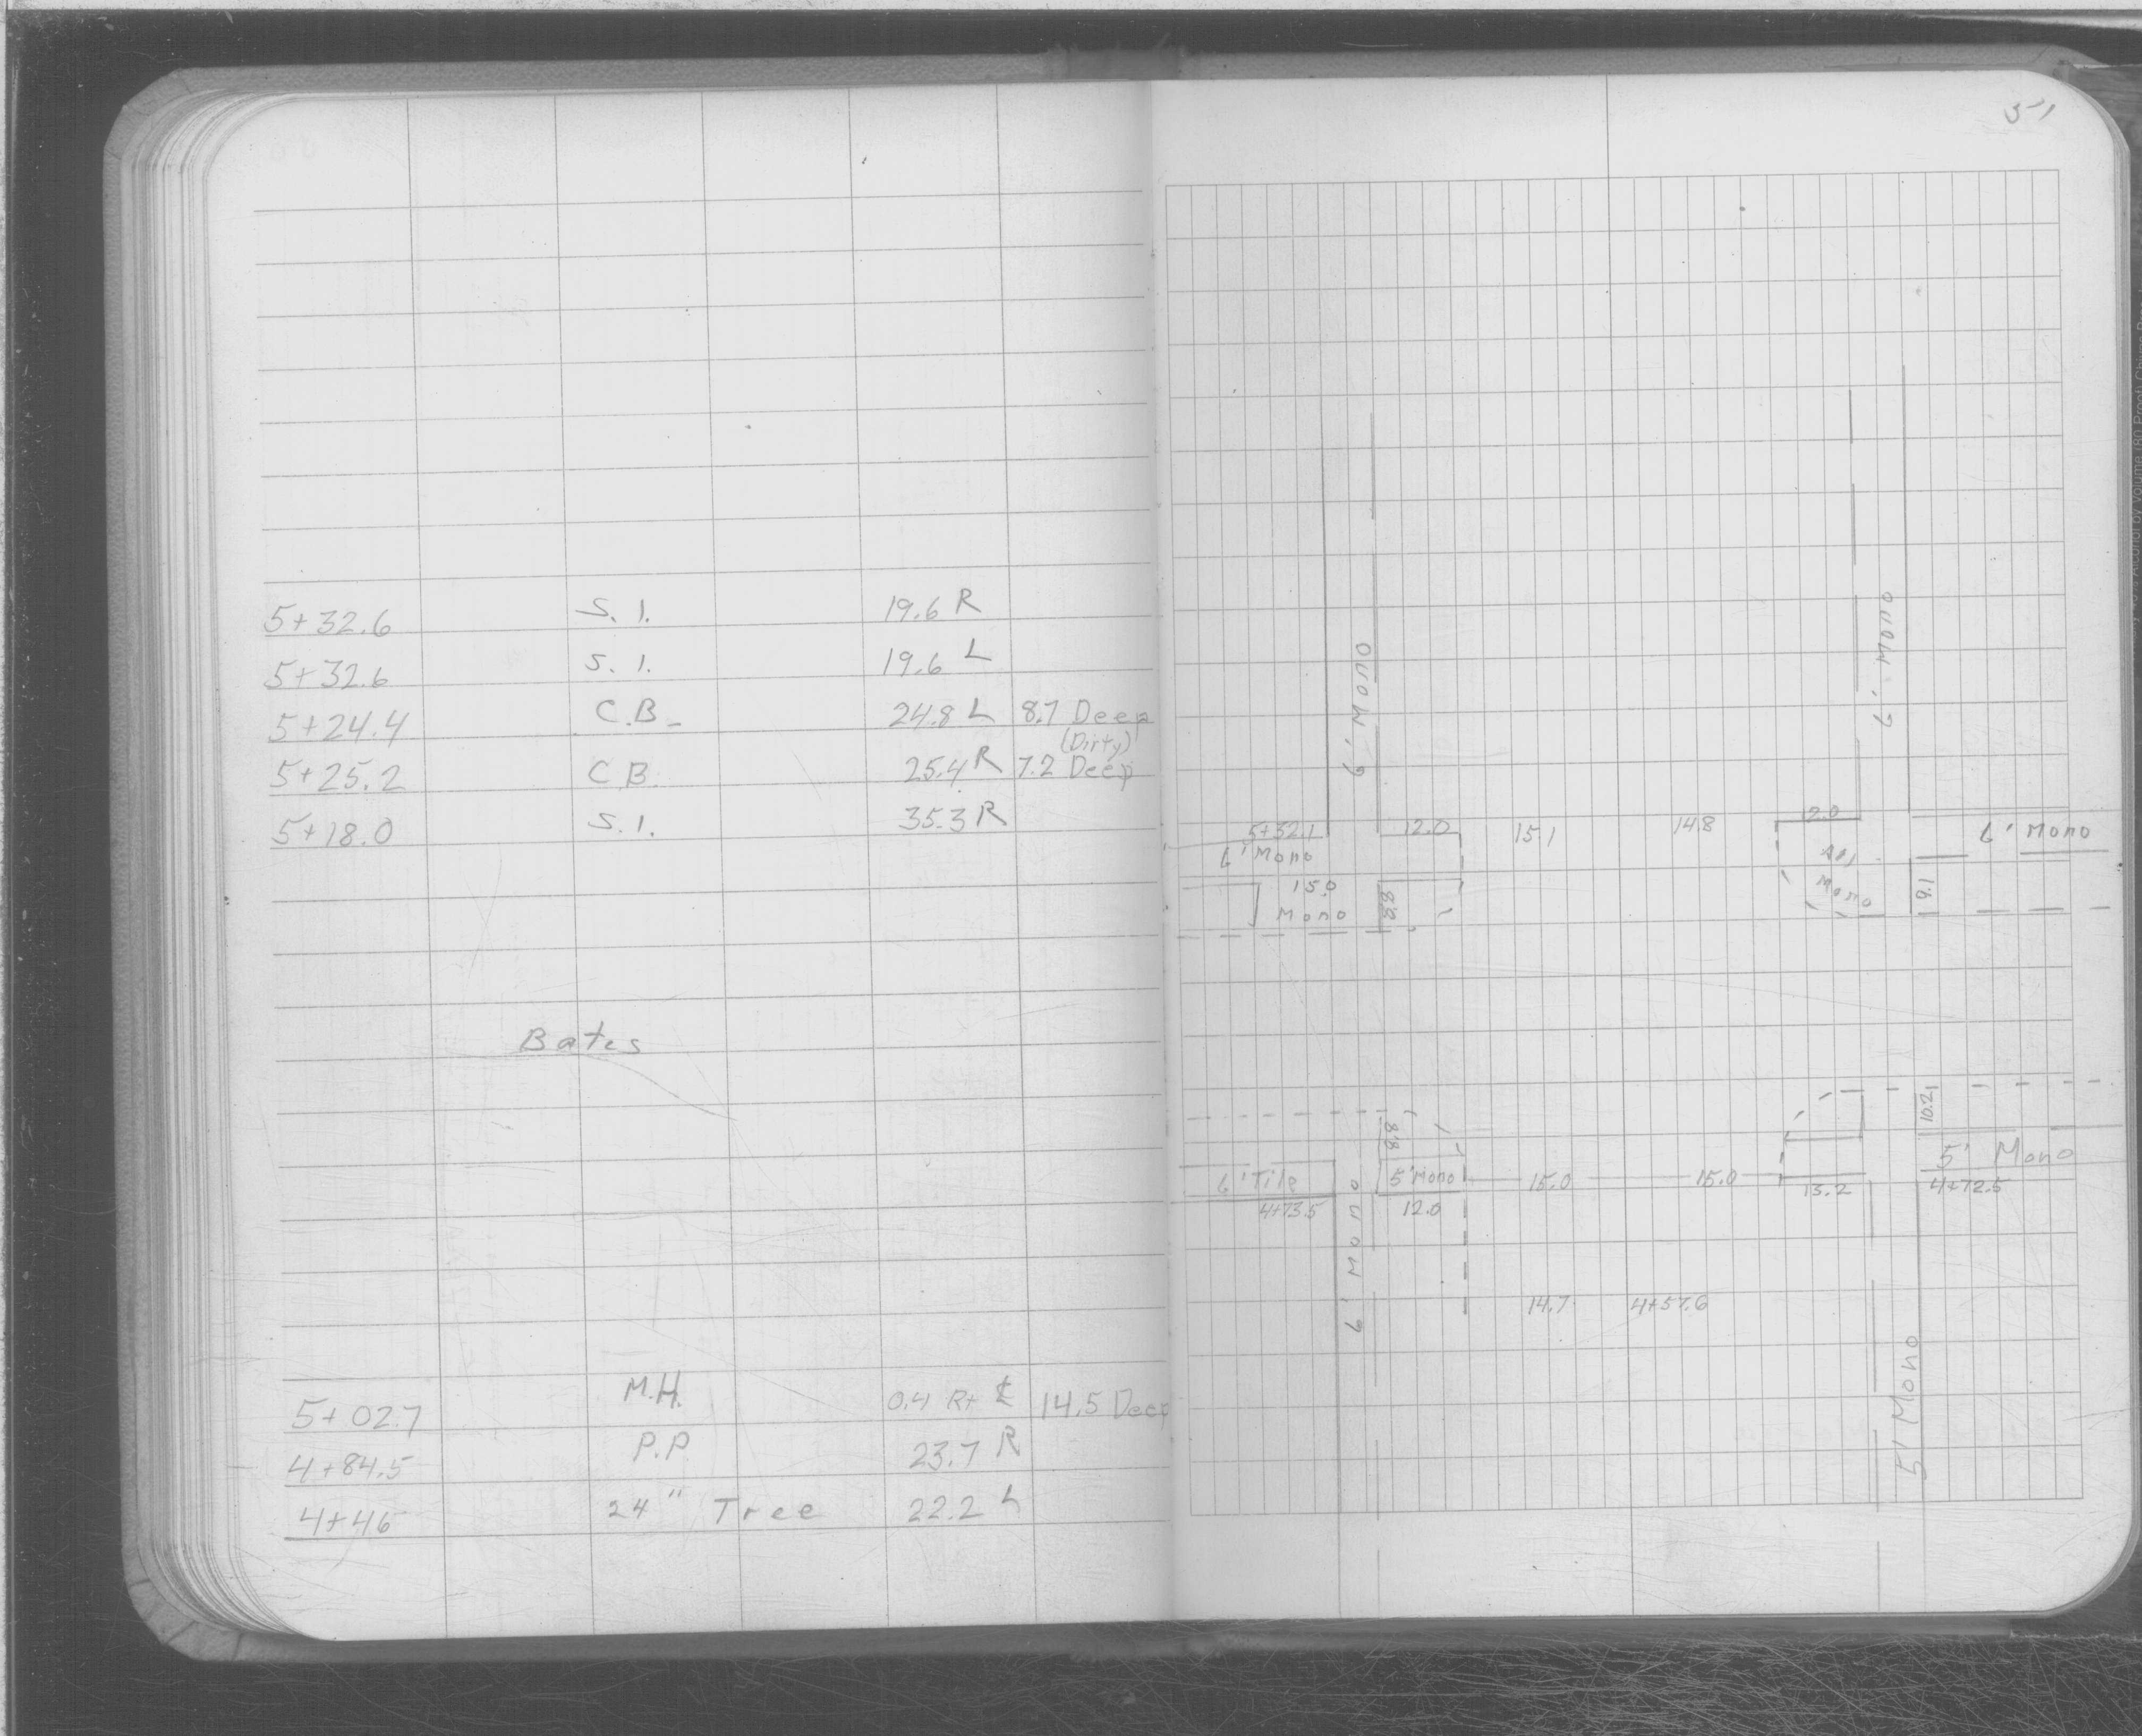 51
5+32.6 S.I. 19.6 R
5+32.6 S.I. 19.6 L
5+24.4 C.B. 24.8 L 8.7 Deep
(Dirty)
5+25.2 C.B. 25.4 R 7.2 Deep
5+18.0 S.I. 35.3 R
Bates
5+02.7 M.H. 0.4 Rt ℄ 14.5 Deep
4+84.5 P.P. 23.7 R
4+46 24" Tree 22.2 L
6' Mono
6' Mono
5+32.1 12.0 15.1 14.8 12.0 6' Mono
6' Mono
15.0
Mono 8.8 Mono 9.1
8.8 10.2
6' Tile 5' Mono 15.0 15.0 13.2 5' Mono
4+73.5 12.0 4+72.5
6' Mono
14.7 4+57.6
5' Mono